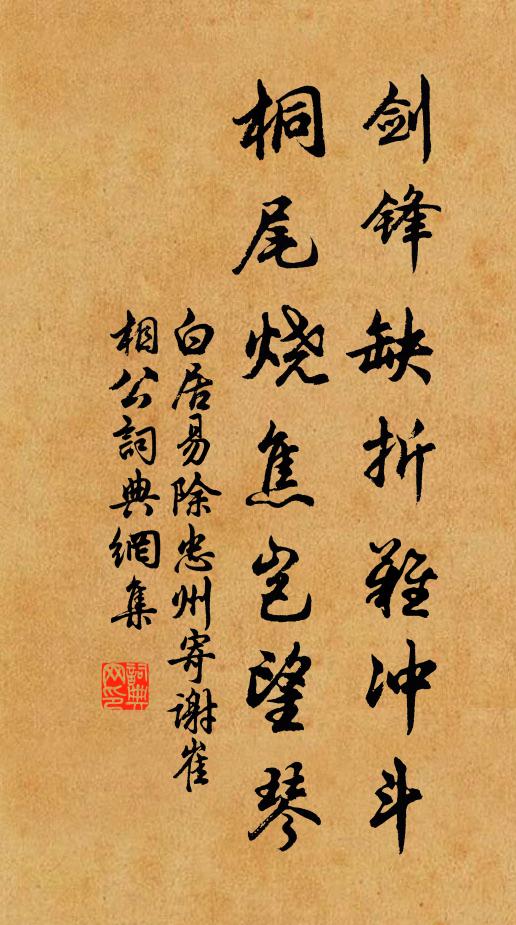 剑锋缺折难冲斗
桐尾烧焦岂望琴
白居易除忠州寄谢崔
相公詞典網集
詞典
网印